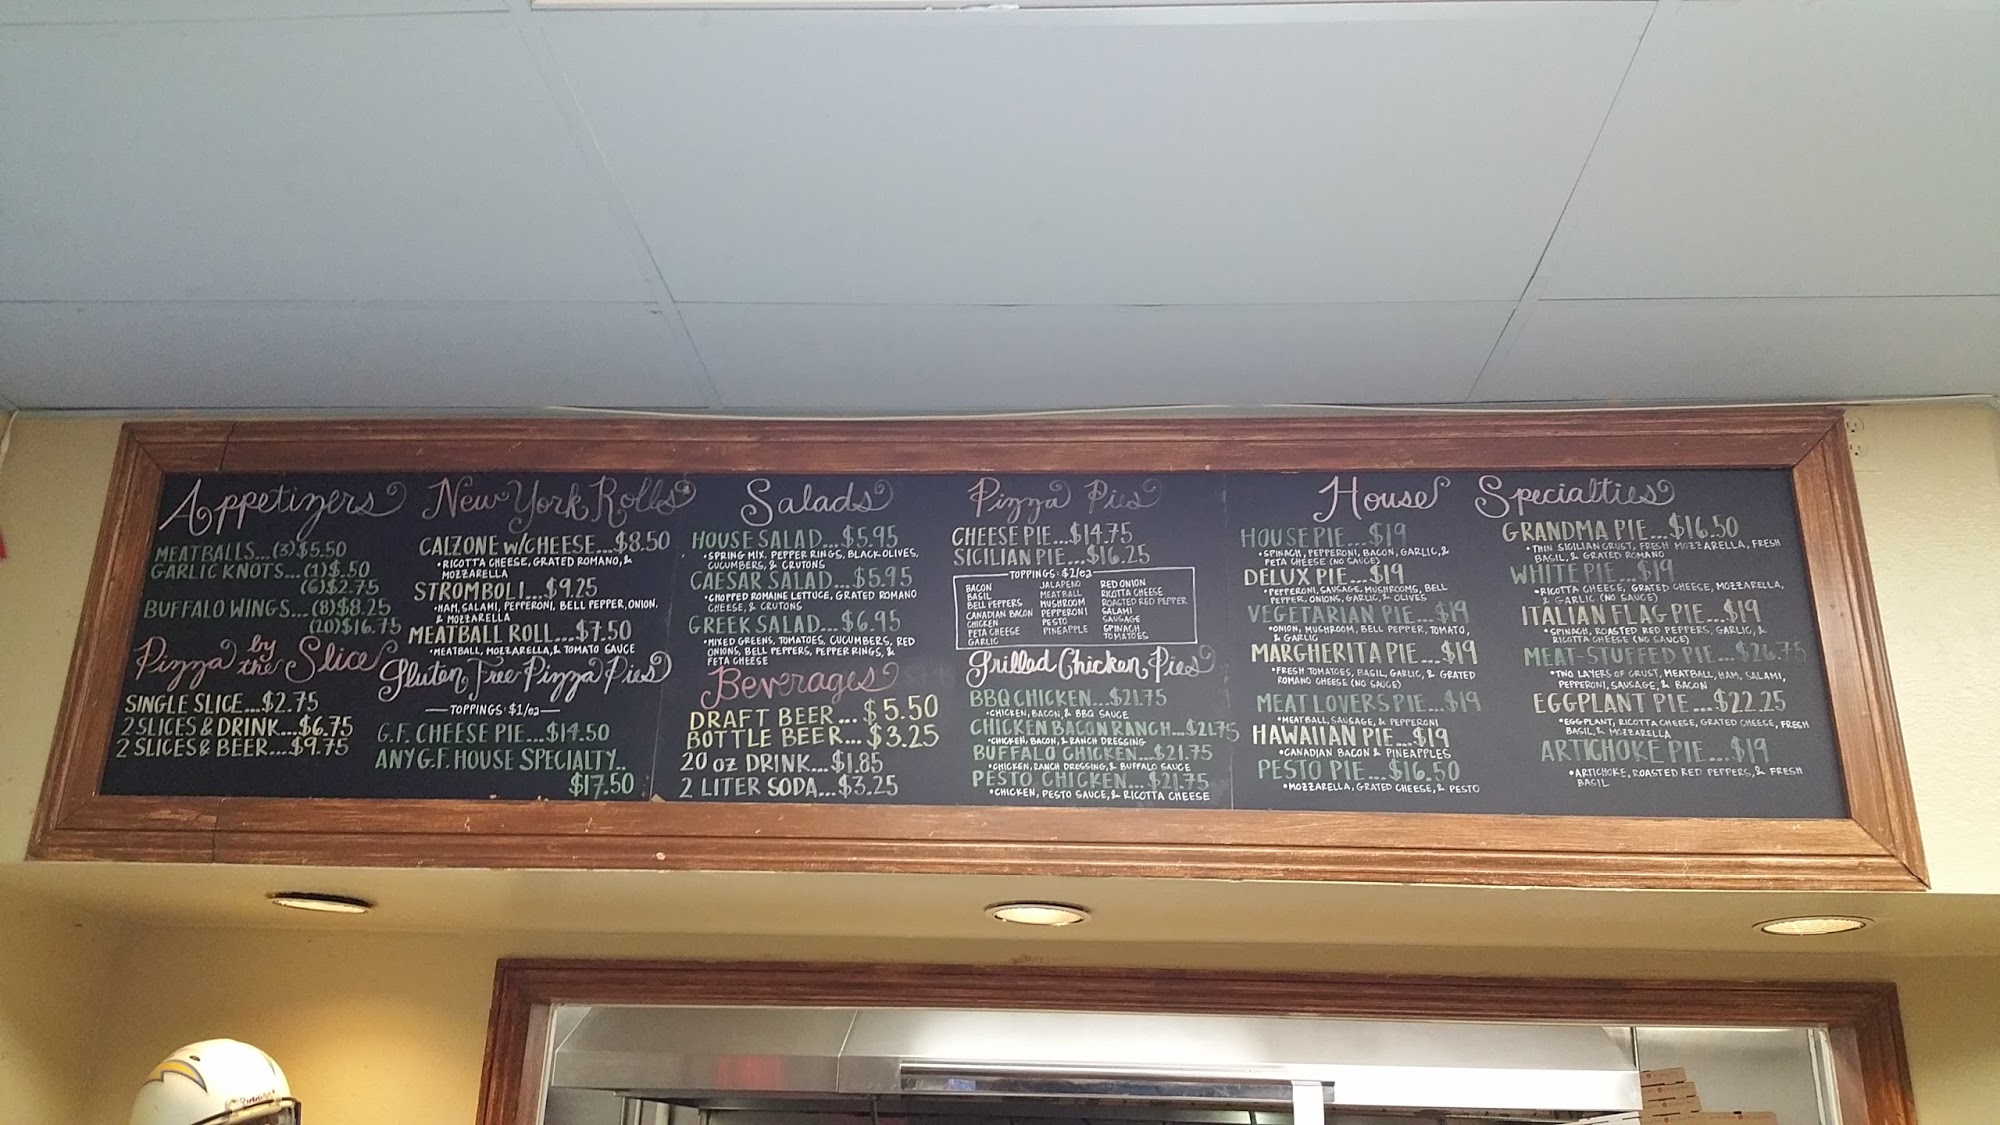 Appetizers
MEATBALLS...(3)$5.50
GARLIC KNOTS...(1)$.50
(6)$2.75
BUFFALO WINGS...(8)$8.25
(20)$16.75
Pizza by the Slice
SINGLE SLICE...$2.75
2 SLICES & DRINK...$6.75
2 SLICES & BEER...$9.75
New York Rolls
CALZONE W/CHEESE...$8.50
•RICOTTA CHEESE, GRATED ROMANO, &
MOZZARELLA
STROMBOLI...$9.25
•HAM, SALAMI, PEPPERONI, BELL PEPPER, ONION,
& MOZZARELLA
MEATBALL ROLL...$7.50
•MEATBALL, MOZZARELLA, & TOMATO SAUCE
Gluten Free Pizza Pies
TOPPINGS $1/ea
G.F. CHEESE PIE...$14.50
ANY G.F. HOUSE SPECIALTY..
$17.50
Salads
HOUSE SALAD...$5.95
•SPRING MIX, PEPPER RINGS, BLACK OLIVES,
CUCUMBERS, & CRUTONS
CAESAR SALAD...$5.95
•CHOPPED ROMAINE LETTUCE, GRATED ROMANO
CHEESE, & CRUTONS
GREEK SALAD...$6.95
•MIXED GREENS, TOMATOES, CUCUMBERS, RED
ONIONS, BELL PEPPERS, PEPPER RINGS, &
FETA CHEESE
Beverages
DRAFT BEER...$5.50
BOTTLE BEER...$3.25
20 oz DRINK...$1.85
2 LITER SODA...$3.25
Pizza Pies
CHEESE PIE...$14.75
SICILIAN PIE...$16.25
TOPPINGS $2/ea
BACON
BASIL
BELL PEPPERS
CANADIAN BACON
CHICKEN
FETA CHEESE
GARLIC
JALAPENO
MEATBALL
MUSHROOM
PEPPERONI
PESTO
PINEAPPLE
RED ONION
RICOTTA CHEESE
ROASTED RED PEPPER
SALAMI
SAUSAGE
SPINACH
TOMATOES
Grilled Chicken Pies
BBQ CHICKEN...$21.75
•CHICKEN, BACON, & BBQ SAUCE
CHICKEN BACON RANCH...$21.75
CHICKEN, BACON, & RANCH DRESSING
BUFFALO CHICKEN...$21.75
•CHICKEN, RANCH DRESSING, & BUFFALO SAUCE
PESTO CHICKEN...$21.75
•CHICKEN, PESTO SAUCE, & RICOTTA CHEESE
House Specialties
HOUSE PIE...$19
•SPINACH, PEPPERONI, BACON, GARLIC, &
FETA CHEESE (NO SAUCE)
DELUX PIE...$19
•PEPPERONI, SAUSAGE, MUSHROOMS, BELL
PEPPER, ONIONS, GARLIC, & OLIVES
VEGETARIAN PIE...$19
•ONION, MUSHROOM, BELL PEPPER, TOMATO,
& GARLIC
MARGHERITA PIE...$19
•FRESH TOMATOES, BASIL, GARLIC, & GRATED
ROMANO CHEESE (NO SAUCE)
MEAT LOVERS PIE...$19
•MEATBALL, SAUSAGE, & PEPPERONI
HAWAIIAN PIE...$19
•CANADIAN BACON & PINEAPPLES
PESTO PIE...$16.50
•MOZZARELLA, GRATED CHEESE, & PESTO
GRANDMA PIE...$16.50
•THIN SICILIAN CRUST, FRESH MOZZARELLA, FRESH
BASIL, & GRATED ROMANO
WHITE PIE...$19
•RICOTTA CHEESE, GRATED CHEESE, MOZZARELLA,
& GARLIC (NO SAUCE)
ITALIAN FLAG PIE...$19
•SPINACH, ROASTED RED PEPPERS, GARLIC, &
RICOTTA CHEESE (NO SAUCE)
MEAT-STUFFED PIE...$26.75
•TWO LAYERS OF CRUST, MEATBALL, HAM, SALAMI,
PEPPERONI, SAUSAGE, & BACON
EGGPLANT PIE...$22.25
•EGGPLANT, RICOTTA CHEESE, GRATED CHEESE, FRESH
BASIL, & MOZZARELLA
ARTICHOKE PIE...$19
•ARTICHOKE, ROASTED RED PEPPERS, & FRESH
BASIL